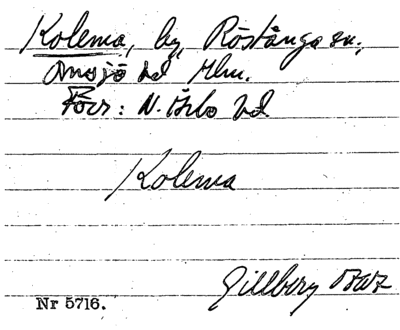 Kolema, by, Röstånga sn.,
Onsjö hd Mlm.
Förr: N. Åsbo hd
Kolema
Gillberg
Nr 5716.